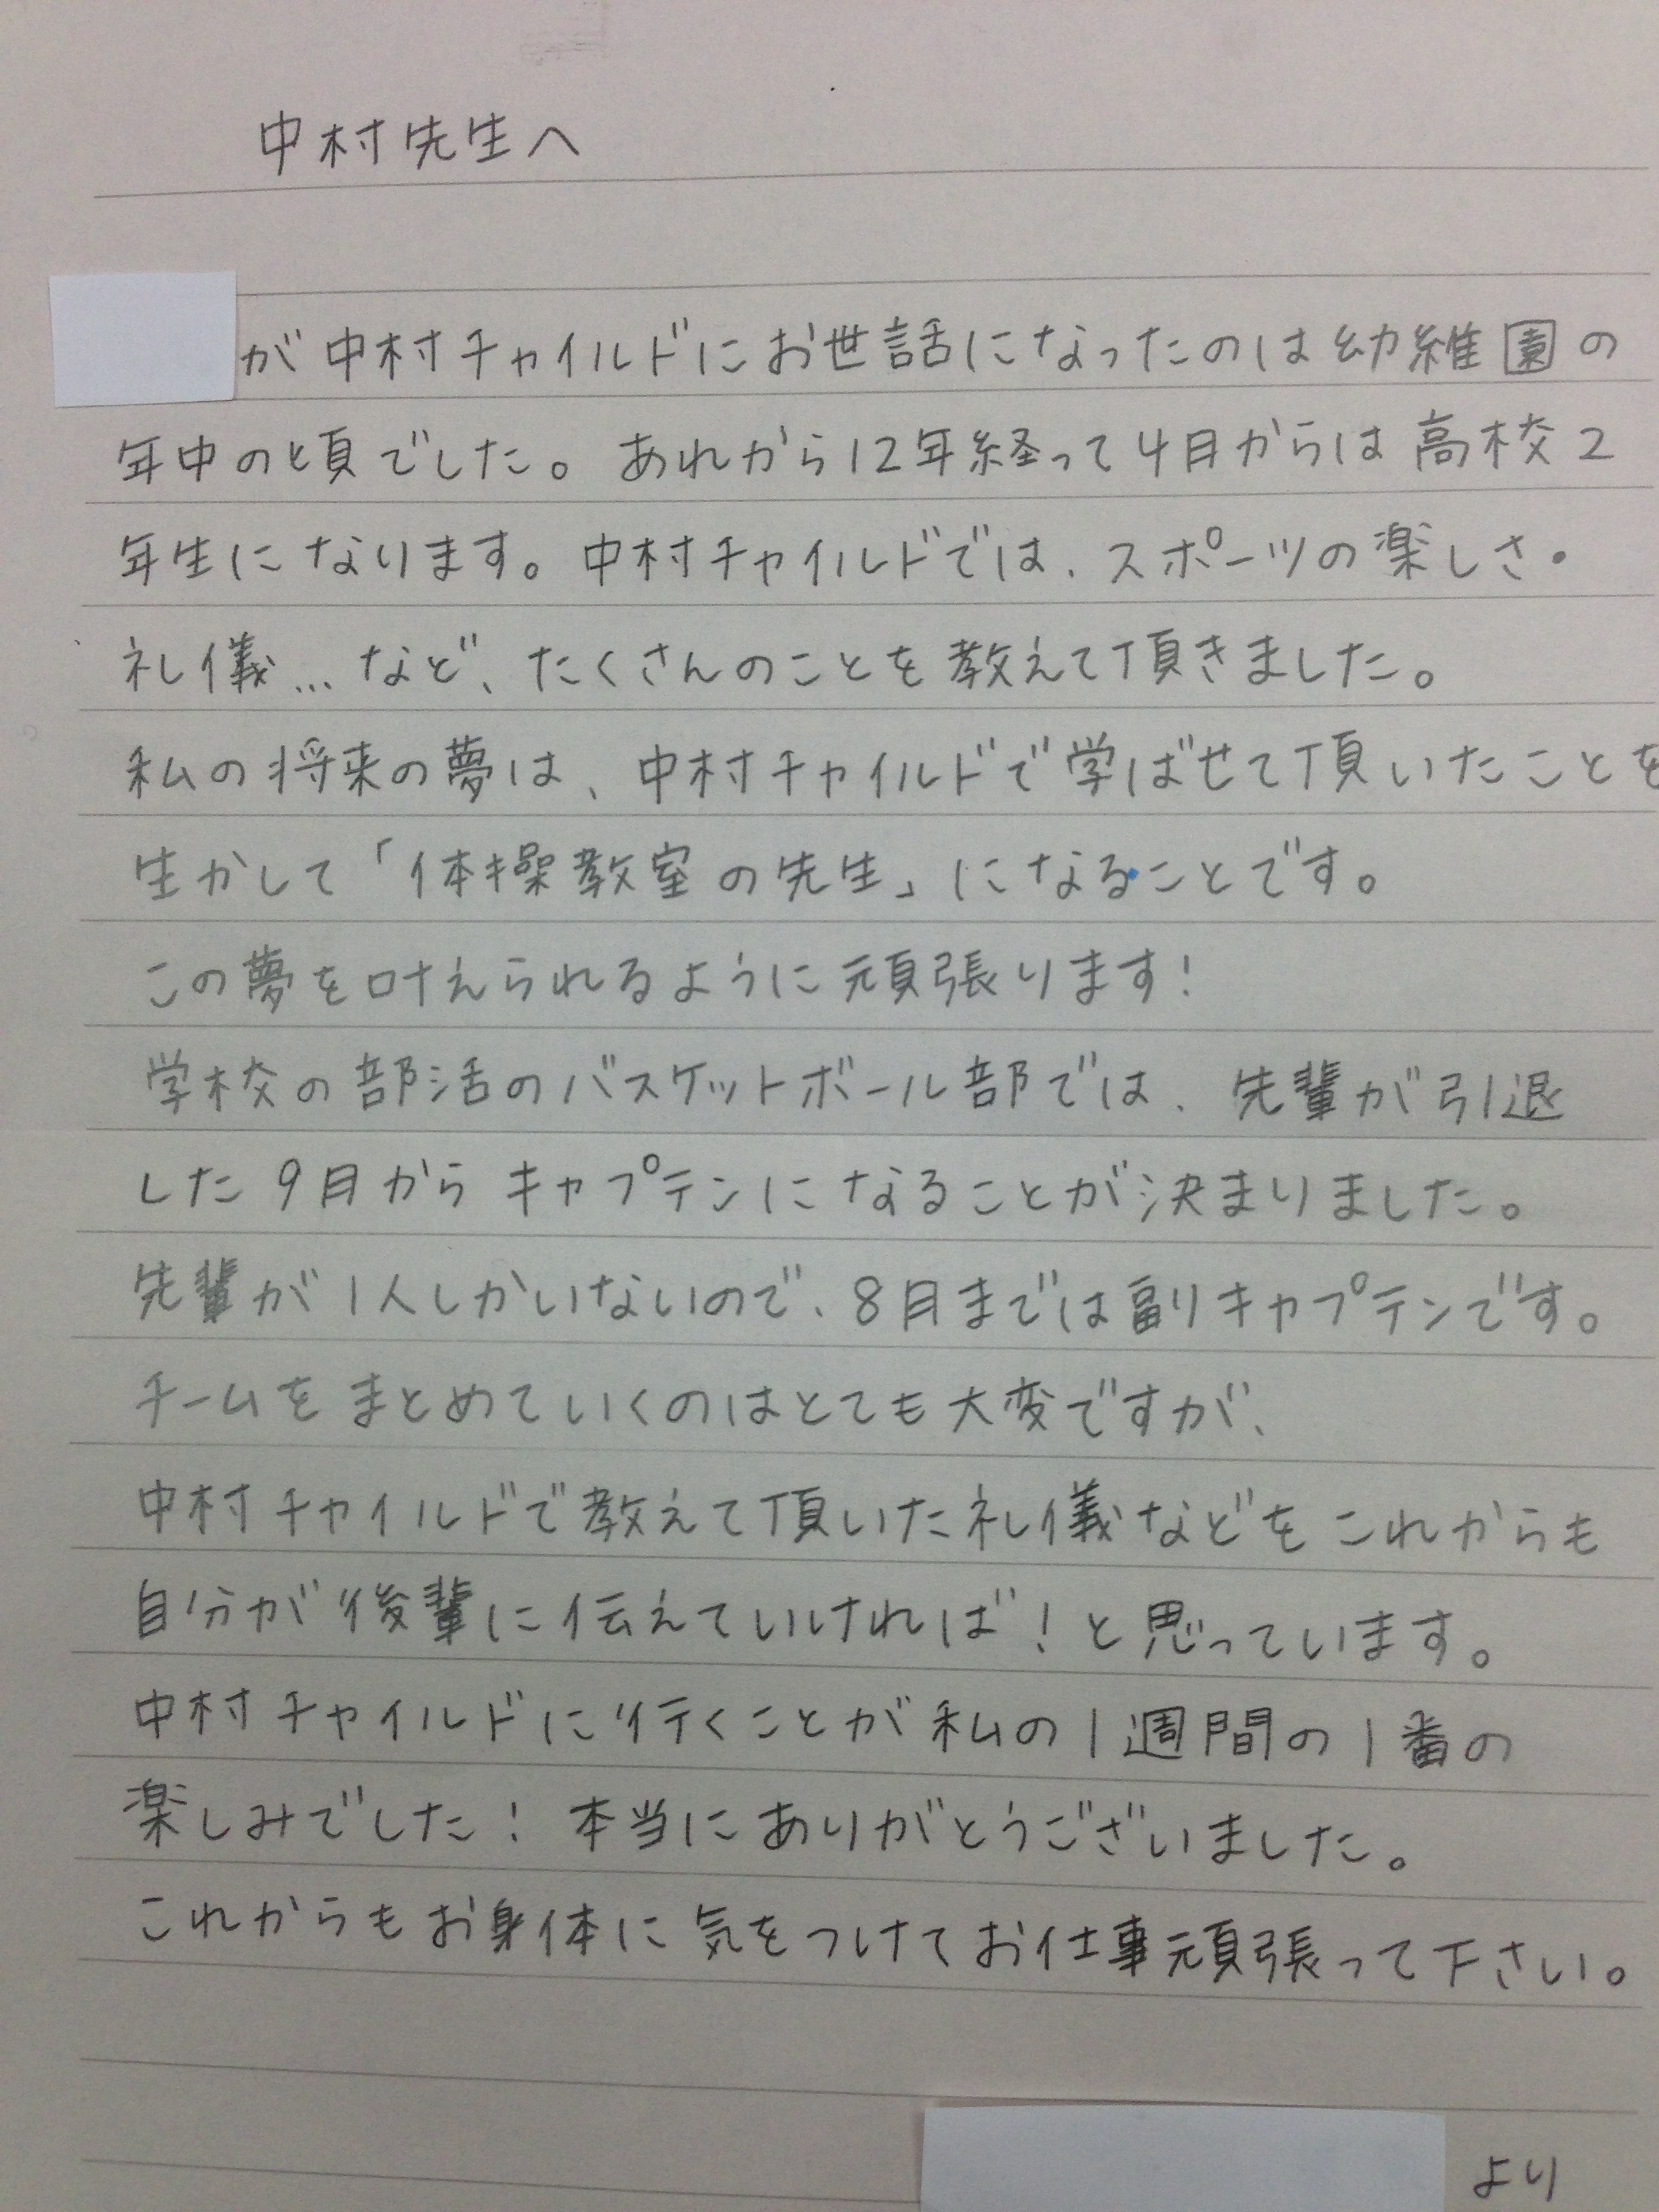 中村先生へ
が中村チャイルドにお世話になったのは幼稚園の
年中の頃でした。あれから12年経って4月からは高校2
年生になります。中村チャイルドでは、スポーツの楽しさ・
礼儀…など、たくさんのことを教えて頂きました。
私の将来の夢は、中村チャイルドで学ばせて頂いたことを
生かして「体操教室の先生」になることです。
この夢を叶えられるように頑張ります!
学校の部活のバスケットボール部では、先輩が引退
した9月からキャプテンになることが決まりました。
先輩が1人しかいないので、8月までは副キャプテンです。
チームをまとめていくのはとても大変ですが、
中村チャイルドで教えて頂いた礼儀などをこれからも
自分が後輩に伝えていければ!と思っています。
中村チャイルドに行くことが私の1週間の1番の
楽しみでした!本当にありがとうございました。
これからもお身体に気をつけてお仕事頑張って下さい。
より